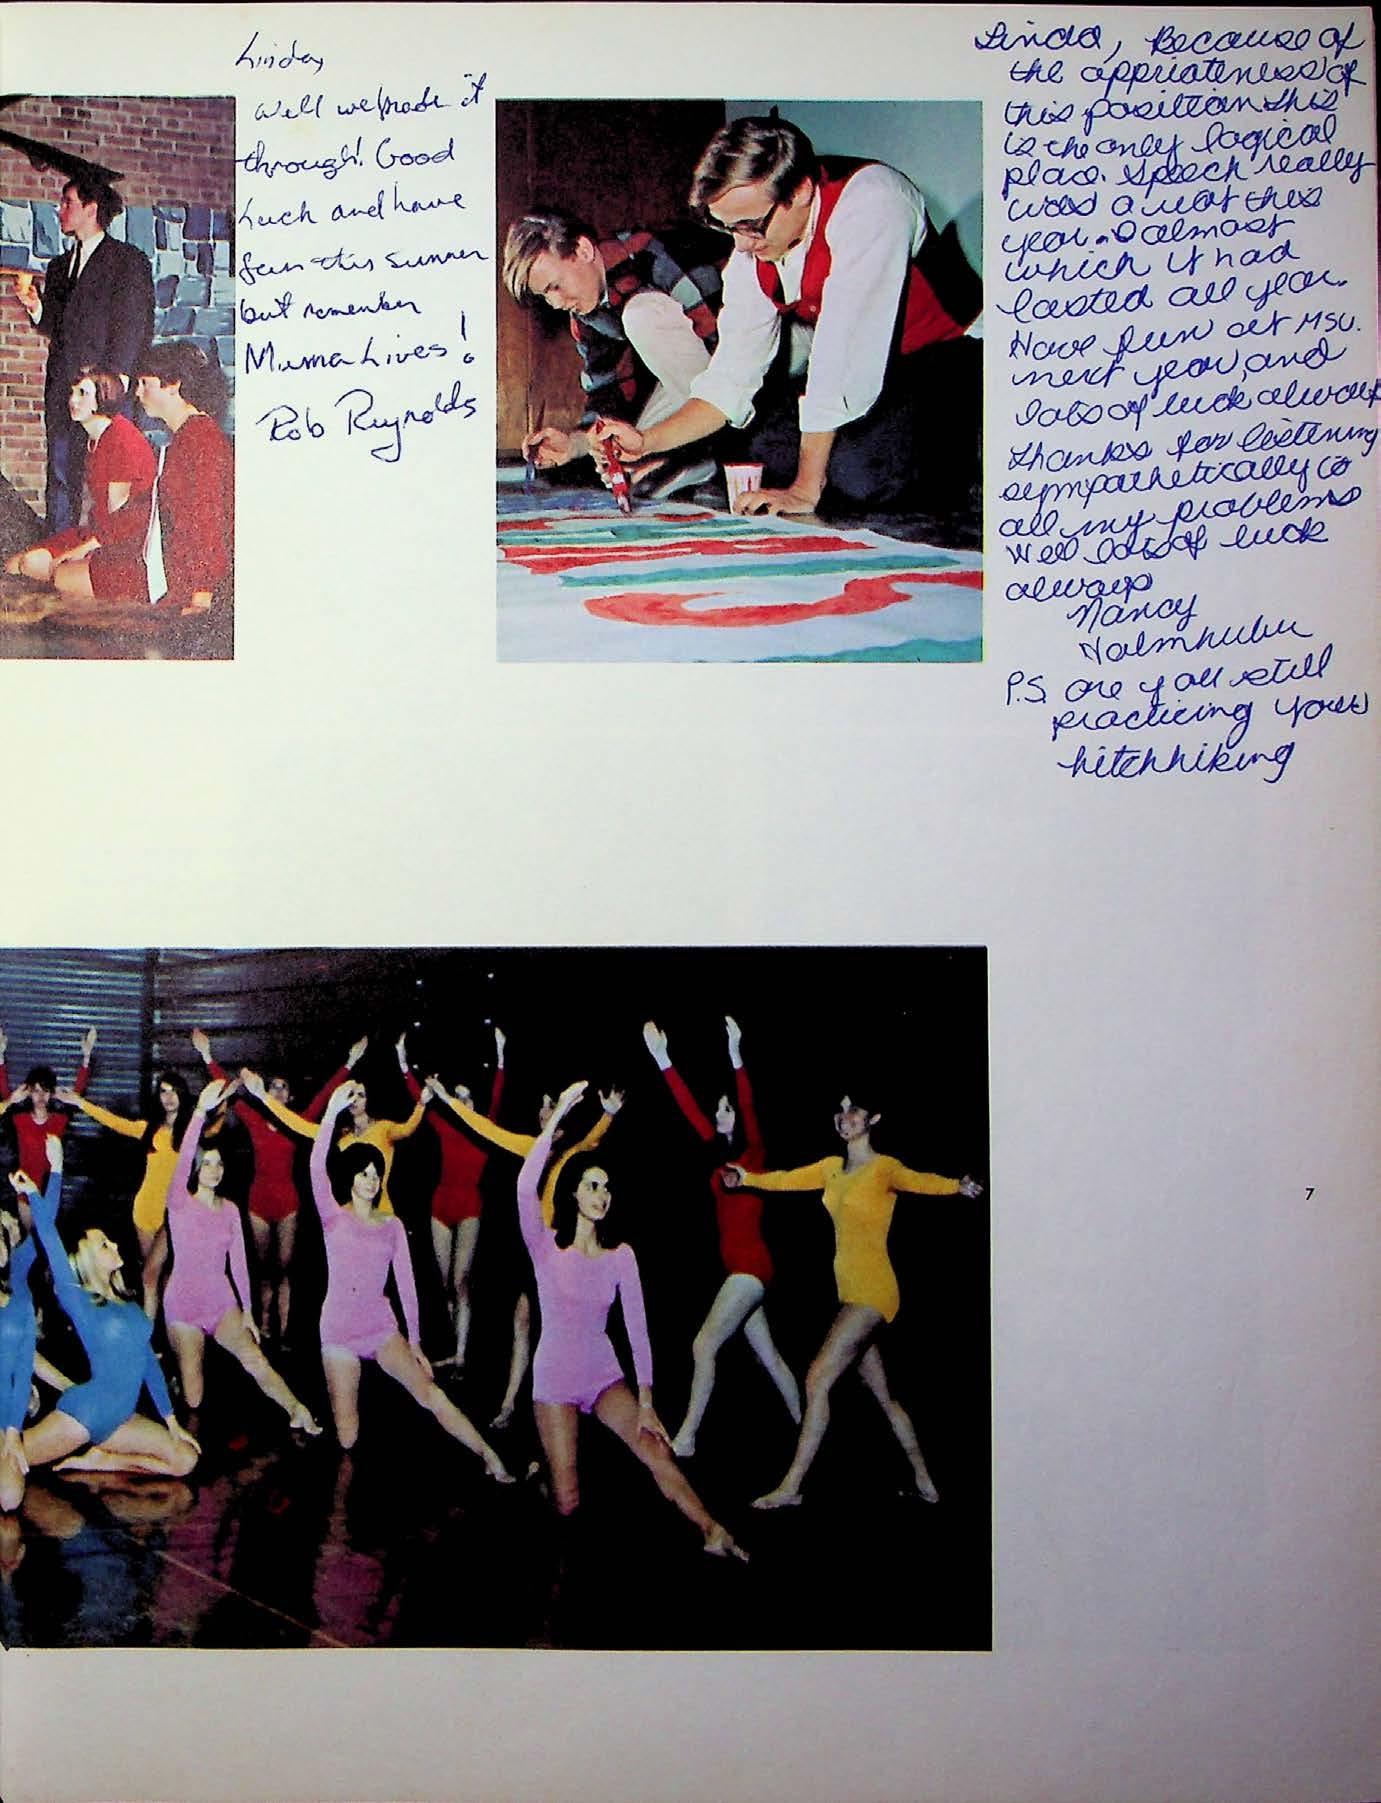 Linda,
Well we made it
through! Good
Luck and have
fun this summer
but remember
Muma Lives!
Rob Reynolds
Linda, Because of
the appriateness of
this position this
is the only logical
place. Speech really
was a riot this
year. I almost
which it had
lasted all year.
Have fun at MSU.
next year, and
lots of luck always
thanks for listening
sympathetically to
all my problems
Well lots of luck
always
Nancy
P.S. are you still
practicing your
hitchhiking
7